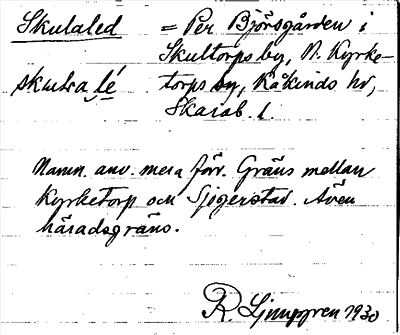 Skulaled = Per Björsgården i
Skultorps by, N. Kyrke-
skula lé torps sn, Kåkinds hd,
Skarab. l.
Namn. anv. mera förr. Gräns mellan
Kyrketorp och Sjogerstad. Även
häradsgräns.
R. Ljunggren 1930